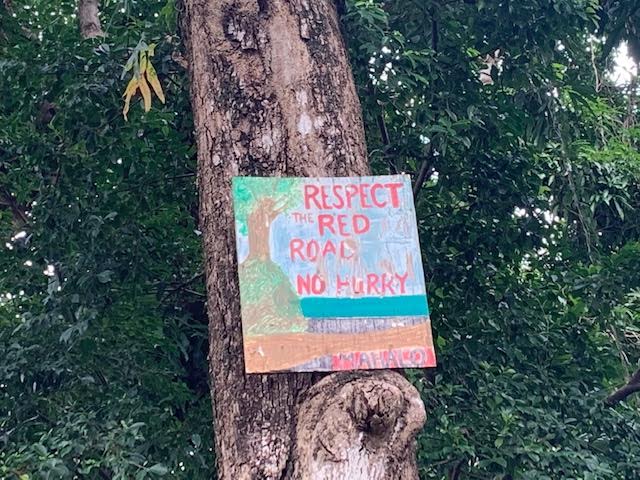 RESPECT
THE RED
ROAD
NO HURRY
MAHALO